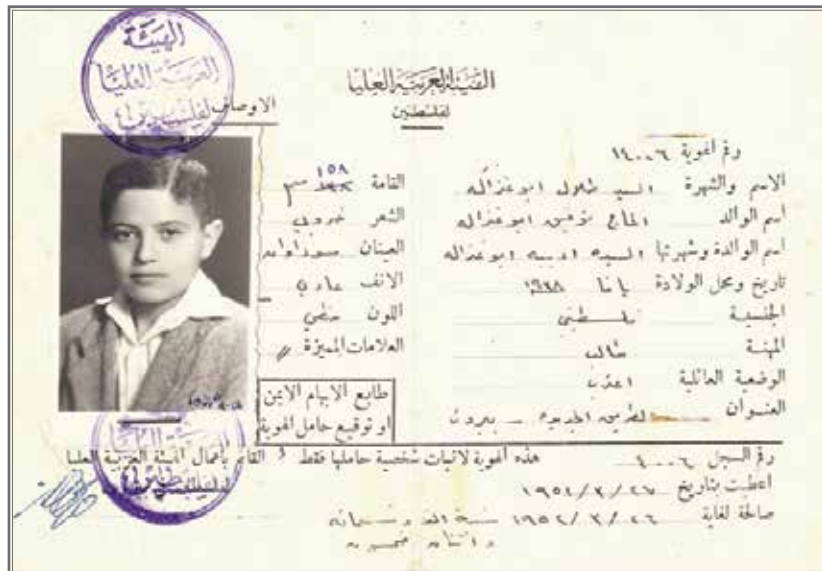 الهيئة
العربية العليا
لفلسطين
الهيئة العربية العليا
لفلسطين
الاوصاف
رقم الهوية ١٤٠٠٦
الاسم والشهرة السيد طلال ابو غزاله
اسم الوالد الحاج توفيق ابو غزاله
اسم الوالدة وشهرتها السيده اديبه ابو غزاله
تاريخ ومحل الولادة يافا ١٩٣٨
الجنسية فلسطيني
المهنة طالب
الوضعية العائلية اعزب
العنوان الطريق الجديده - بيروت
القامة ١٥٨ سم
الشعر خروبي
العينان سوداوان
الانف عادي
اللون حنطي
العلامات المميزة //
طابع الابهام الايمن
او توقيع حامل الهوية
رقم السجل ٤٠٠٦ هذه الهوية لاثبات شخصية حاملها فقط القائم باعمال الهيئة العربية العليا
اعطيت بتاريخ ١٩٥١/٣/٢٧
صالحة لغاية ١٩٥٢/٣/٢٦ سنة الف وتسعمائه
واثنان وخمسون